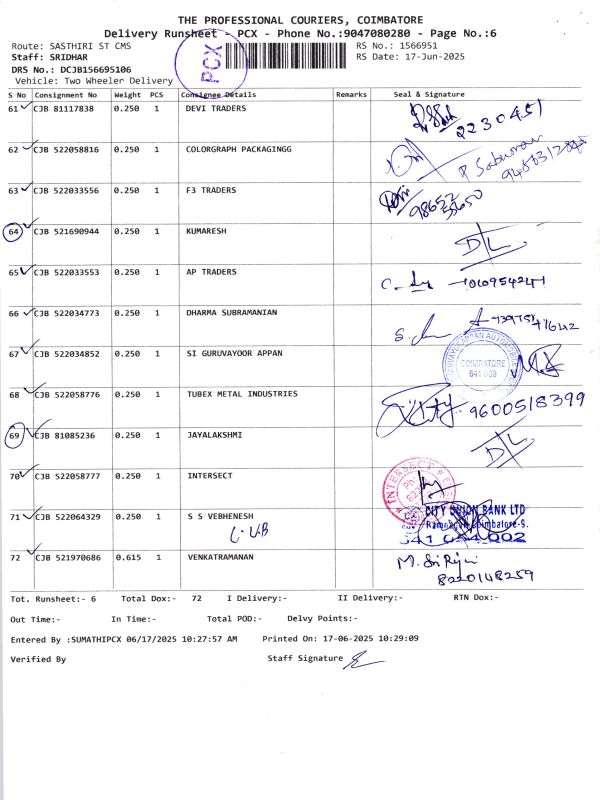 THE PROFESSIONAL COURIERS, COIMBATORE
Delivery Runsheet - PCX - Phone No.:9047080280 - Page No.:6
Route: SASTHIRI ST CMS
RS No.: 1566951
Staff: SRIDHAR
RS Date: 17-Jun-2025
DRS No.: DCJB156695106
Vehicle: Two Wheeler Delivery
PCX
S No Consignment No Weight PCS Consignee Details Remarks Seal & Signature
61 CJB 81117838 0.250 1 DEVI TRADERS 2230451
62 CJB 522058816 0.250 1 COLORGRAPH PACKAGINGG
63 CJB 522033556 0.250 1 F3 TRADERS
64 CJB 521690944 0.250 1 KUMARESH D/L
65 CJB 522033553 0.250 1 AP TRADERS
66 CJB 522034773 0.250 1 DHARMA SUBRAMANIAN
67 CJB 522034852 0.250 1 SI GURUVAYOOR APPAN
COIMBATORE
68 CJB 522058776 0.250 1 TUBEX METAL INDUSTRIES 9600518399
69 CJB 81085236 0.250 1 JAYALAKSHMI D/L
70 CJB 522058777 0.250 1 INTERSECT INTERSECT
71 CJB 522064329 0.250 1 S S VEBHENESH CITY UNION BANK LTD
C.U.B
Coimbatore-9.
72 CJB 521970686 0.615 1 VENKATRAMANAN
8220148259
Tot. Runsheet:- 6 Total Dox:- 72 I Delivery:- II Delivery:- RTN Dox:-
Out Time:- In Time:- Total POD:- Delvy Points:-
Entered By :SUMATHIPCX 06/17/2025 10:27:57 AM Printed On: 17-06-2025 10:29:09
Verified By Staff Signature